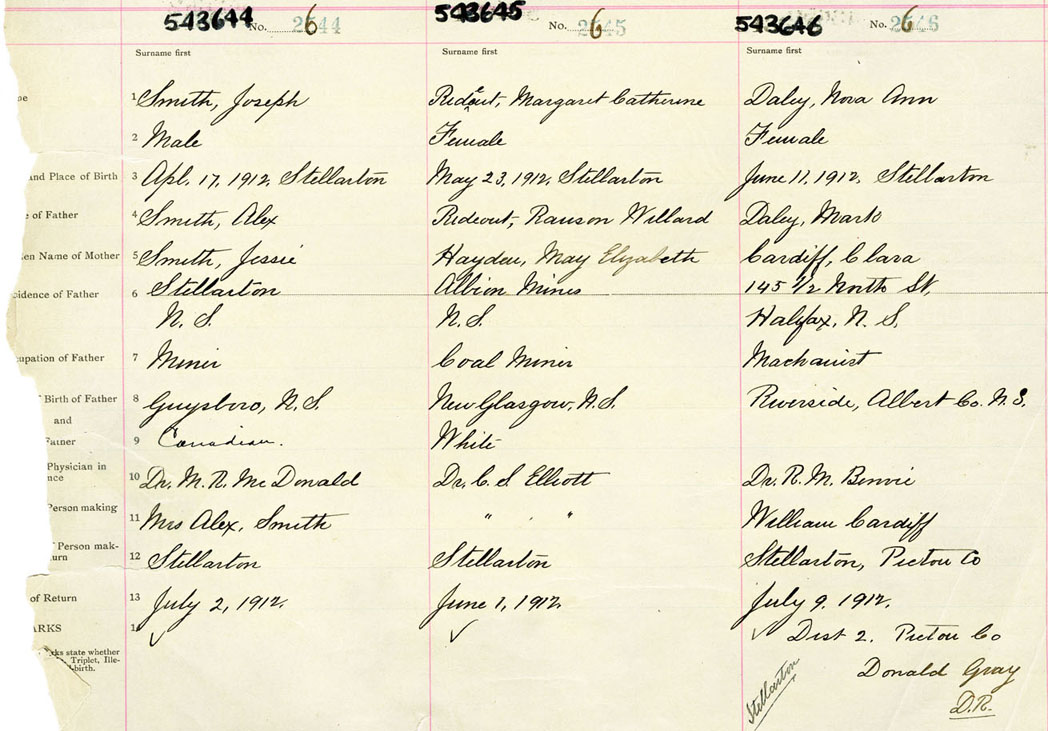 543644 No. 6 2544 543645 No. 6 2545 543646 No. 6 2546
Surname first Surname first Surname first
1 Smith, Joseph Rideout, Margaret Catherine Daley, Nora Ann
2 Male Female Female
and Place of Birth 3 Apl. 17, 1912, Stellarton May 23, 1912, Stellarton June 11, 1912, Stellarton
of Father 4 Smith, Alex Rideout, Ranson Willard Daley, Mark
en Name of Mother 5 Smith, Jessie Hayden, May Elyzabeth Cardiff, Clara
idence of Father 6 Stellarton Albion Mines 145 1/2 North St,
N.S. N.S. Halifax, N.S.
upation of Father 7 Miner Coal Miner Machanist
Birth of Father 8 Guysboro, N.S. New Glasgow, N.S. Riverside, Albert Co. N.S.
and
Father 9 Canadian. White
Physician in 10 Dr. M. R. McDonald Dr. C. S Elliott Dr. R. M. Benvie
nce
Person making 11 Mrs Alex, Smith " " William Cardiff
Person mak- 12 Stellarton Stellarton Stellarton, Pictou Co
urn
of Return 13 July 2, 1912, June 1, 1912, July 9, 1912,
ARKS 1 ✓ ✓ ✓ Dist 2, Pictou Co
ks state whether
Triplet, Ille-
birth.
Donald Gray
Stellarton
D.R.